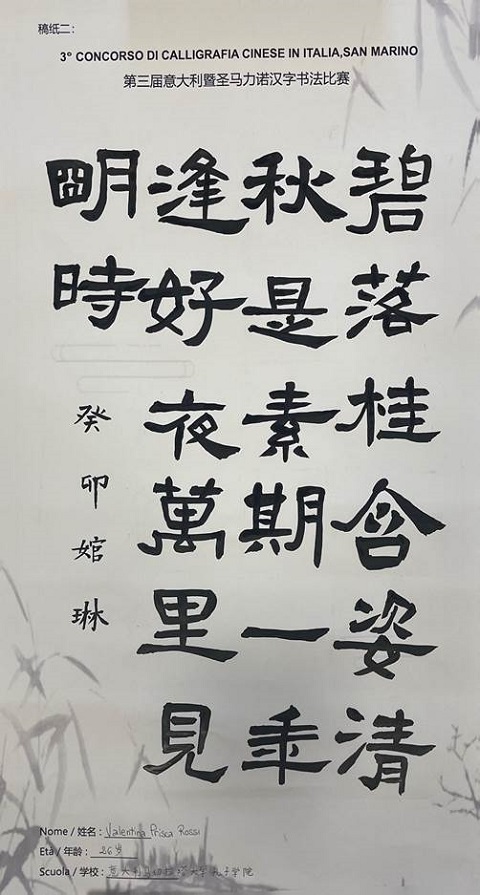 稿纸二：
3° CONCORSO DI CALLIGRAFIA CINESE IN ITALIA,SAN MARINO
第三届意大利暨圣马力诺汉字书法比赛
碧落桂含姿清
秋是素期一年
逢好夜萬里見
朙時
癸卯婠琳
Nome / 姓名：Valentina Prisca Rossi
Età / 年龄：26岁
Scuola / 学校：意大利马切拉塔大学孔子学院